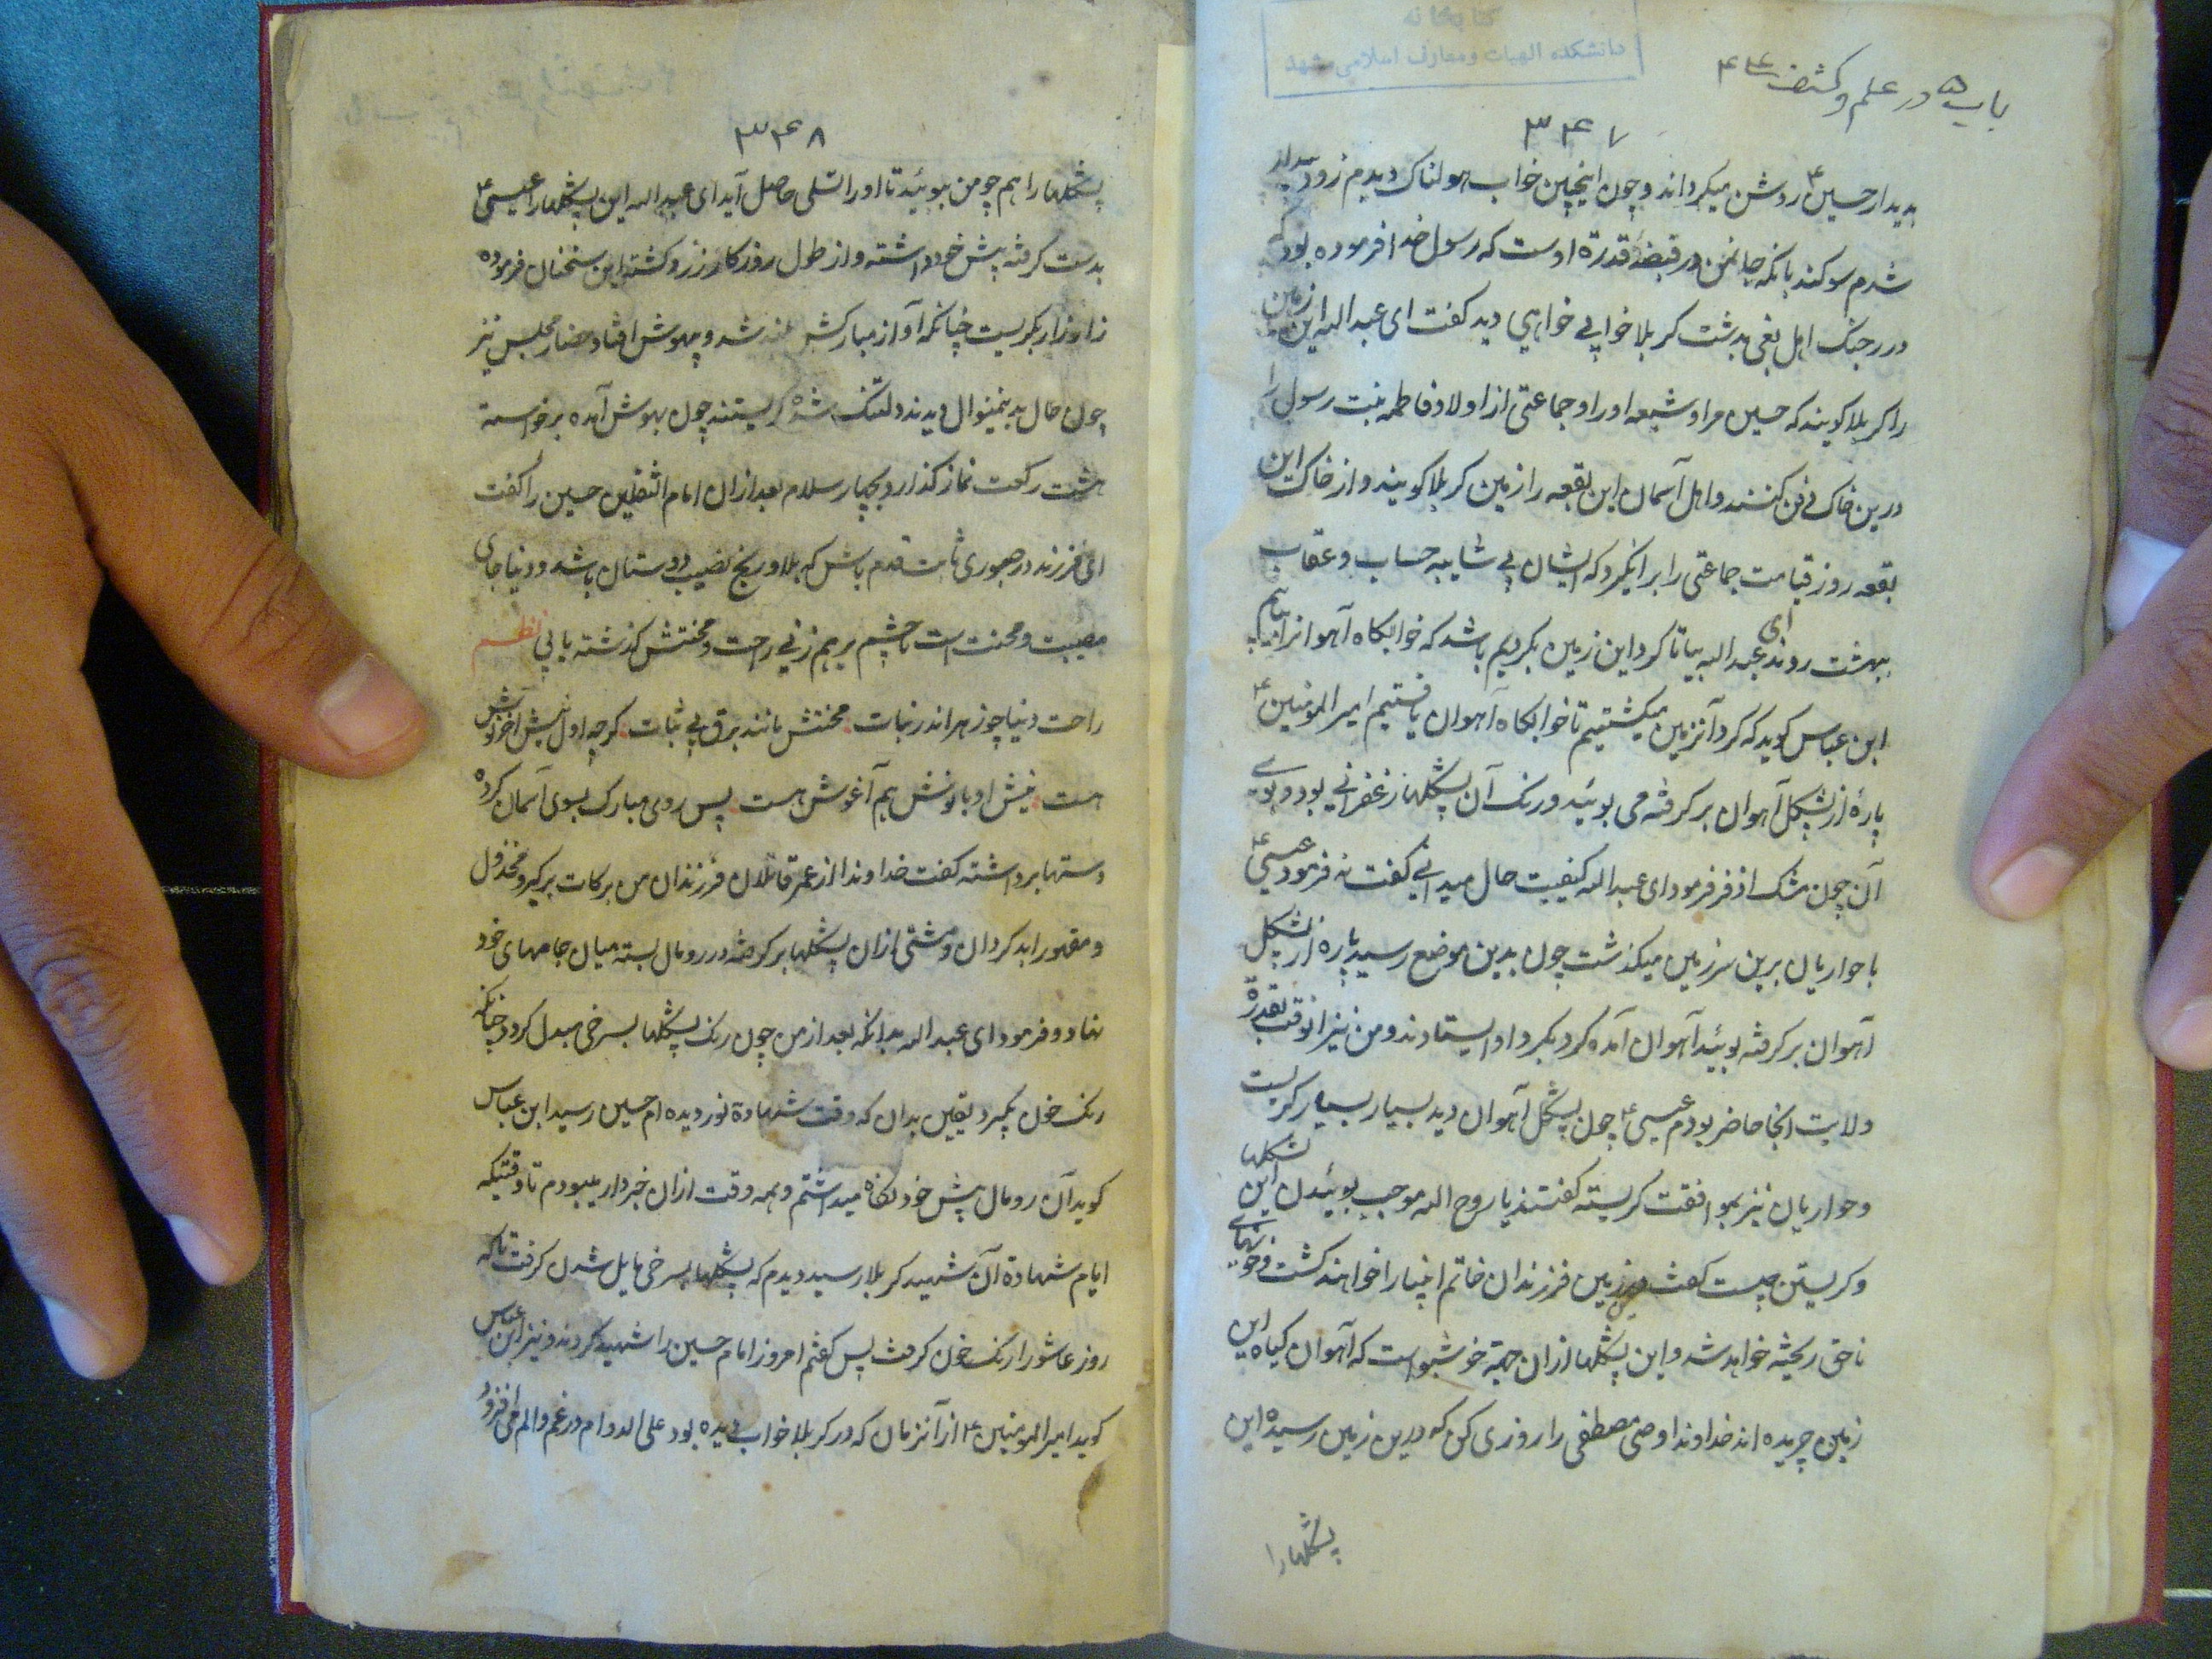 کتابخانه
دانشکده الهیات و معارف اسلامی مشهد
باب ۵ در علم و کشف
۳۴۷
بدیدار حسین ع روشن میکرداند و چون اینچنین خواب هولناک دیدم زود بیدار
شدم سوکند بانکه جانمن در قبضهٔ قدرة اوست که رسول خدا فرموده بود که
در رجنک اهل بغی بدشت کربلا خوابی خواهی دید کفت ای عبد الله این زمین
را کربلا کویند که حسین مرا و شیعه اورا و جماعتی از اولاد فاطمه بنت رسول را
درین خاک دفن کنند و اهل آسمان این بقعه را زمین کربلا کویند و از خاک این
بقعه روز قیامت جماعتی را برانکیزد که ایشان بی شایبه حساب و عقاب
ببهشت روند ای عبد الله بیا تا کرد این زمین بکردیم باشد که خوابکاه آهوانرا بیابم
ابن عباس کوید که کرد آنزمین میکشتیم تا خوابکاه آهوان یافتیم امیر المومنین ع
پارهٔ از پشکل آهوان برکرفته می بوئید و رنک آن پشکلها زغفرانی بود و بوی
آن چون مشک اذفر فرمود ای عبد الله کیفیت حال میدانی کفت نه فرمود عیسی ع
با حواریان برین سرزمین میکذشت چون بدین موضع رسید پاره از پشکل
آهوان برکرفته بوئید آهوان آمده کرد بکرد او ایستادند و من نیز انوقت بقدرة
ولایت انجا حاضر بودم عیسی ع چون پشکل آهوان دید بسیار بسیار کریست
و حواریان نیز بموافقت کریسته کفتند یا روح الله موجب بوئیدن این پشکلها
و کریستن چیست کفت درین زمین فرزندان خاتم انبیا را خواهند کشت و خونهای
ناحق ریخته خواهد شد و این پشکلها ازان جهة خوشبو است که آهوان کیاه این
زمین چریده اند خداوندا وصی مصطفی را روزی کن که درین زمین رسیده این
پشکلها را
۳۴۸
پشکلها را هم چو من ببوئید تا اورا تسلی حاصل آید ای عبد الله این پشکلها را عیسی ع
بدست کرفته پیش خود داشته و از طول روزکار زرد کشته این سخنان فرموده
زار زار بکریست چنانکه آواز مبارکش بلند شد و بیهوش افتاد حضار مجلس نیز
چون حال بدینمنوال دیدند دلتنک شده کریستند چون بهوش آمده برخواسته
هشت رکعت نماز کذارد بچهار سلام بعد ازان امام الثقلین حسین را کفت
ای فرزند در صبوری ثابت قدم باش که بلا و رنج نصیب دوستان باشد و دنیا جای
مصیبت و محنت است تا چشم برهم زنی راحت و محنتش کذشته یابی نظم
راحت دنیا چو زهر اندر نبات محنتش مانند برق بی ثبات کرچه اول نیش اخر نوش
هست نیش او با نوش هم آغوش هست پس روی مبارک بسوی آسمان کرده
دستها برداشته کفت خداوندا از عمر قاتلان فرزندان من برکات برکیر و مخذول
و مقهور ابد کردان و مشتی ازان پشکلها برکرفته در رومال بسته میان جامهای خود
نهاد و فرمود ای عبد الله بدانکه بعد از من چون رنک پشکلها بسرخی مبدل کردد چنانکه
رنک خون بکیرد یقین بدان که وقت شهادة نور دیده ام حسین رسید ابن عباس
کوید آن رومال پیش خود نکاه میداشتم و همه وقت ازان خبردار میبودم تا وقتیکه
ایام شهادة آن شهید کربلا رسید دیدم که پشکلها بسرخی مایل شدن کرفت تا که
روز عاشورا رنک خون کرفت پس کفتم امروز امام حسین را شهید کردند و نیز ابن عباس
کوید امیر المومنین ع از آنزمان که در کربلا خواب دیده بود علی الدوام در غم و الم می افزود